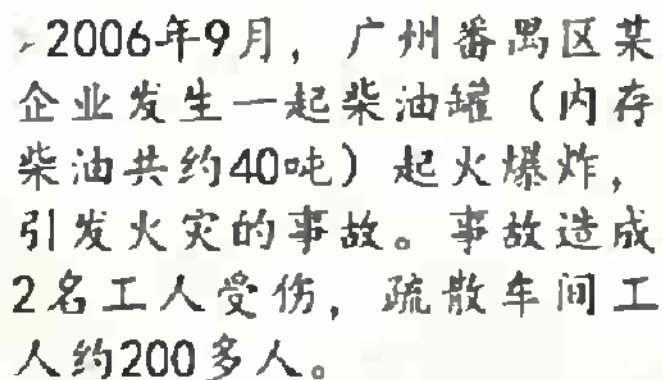 2006年9月，广州番禺区某
企业发生一起柴油罐（内存
柴油共约40吨）起火爆炸，
引发火灾的事故。事故造成
2名工人受伤，疏散车间工
人约200多人。